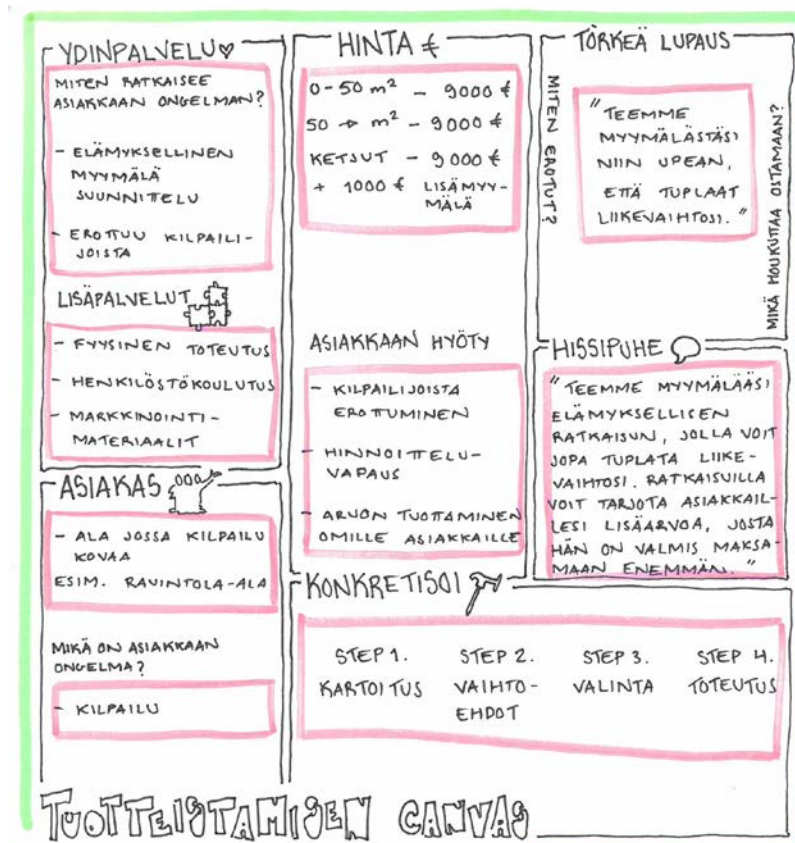 YDINPALVELU
MITEN RATKAISEE
ASIAKKAAN ONGELMAN?
- ELÄMYKSELLINEN
MYYMÄLÄ
SUUNNITTELU
- EROTTUU KILPAILI-
JOISTA
LISÄPALVELUT
- FYYSINEN TOTEUTUS
- HENKILÖSTÖKOULUTUS
- MARKKINOINTI-
MATERIAALIT
ASIAKAS
- ALA JOSSA KILPAILU
KOVAA
ESIM. RAVINTOLA-ALA
MIKÄ ON ASIAKKAAN
ONGELMA?
- KILPAILU
HINTA €
0-50 m² - 9000 €
50 → m² - 9000 €
KETJUT - 9000 €
+ 1000 € LISÄMYY-
MÄLÄ
ASIAKKAAN HYÖTY
- KILPAILIJOISTA
EROTTUMINEN
- HINNOITTELU-
VAPAUS
- ARVON TUOTTAMINEN
OMILLE ASIAKKAILLE
TÖRKEÄ LUPAUS
MITEN EROTUT?
"TEEMME
MYYMÄLÄSTÄSI
NIIN UPEAN,
ETTÄ TUPLAAT
LIIKEVAIHTOSI."
MIKÄ HOUKUTTAA OSTAMAAN?
HISSIPUHE
"TEEMME MYYMÄLÄÄSI
ELÄMYKSELLISEN
RATKAISUN, JOLLA VOIT
JOPA TUPLATA LIIKE-
VAIHTOSI. RATKAISUILLA
VOIT TARJOTA ASIAKKAIL-
LESI LISÄARVOA, JOSTA
HÄN ON VALMIS MAKSA-
MAAN ENEMMÄN."
KONKRETISOI
STEP 1.
KARTOITUS
STEP 2.
VAIHTO-
EHDOT
STEP 3.
VALINTA
STEP 4.
TOTEUTUS
TUOTTEISTAMISEN CANVAS